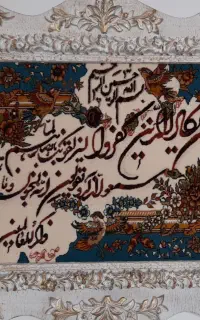 بسم الله الرحمن الرحيم
يكاد الذين كفروا ليزلقونك بابصارهم لما
سمعوا الذكر ويقولون انه لمجنون وما
ذكر للعالمين